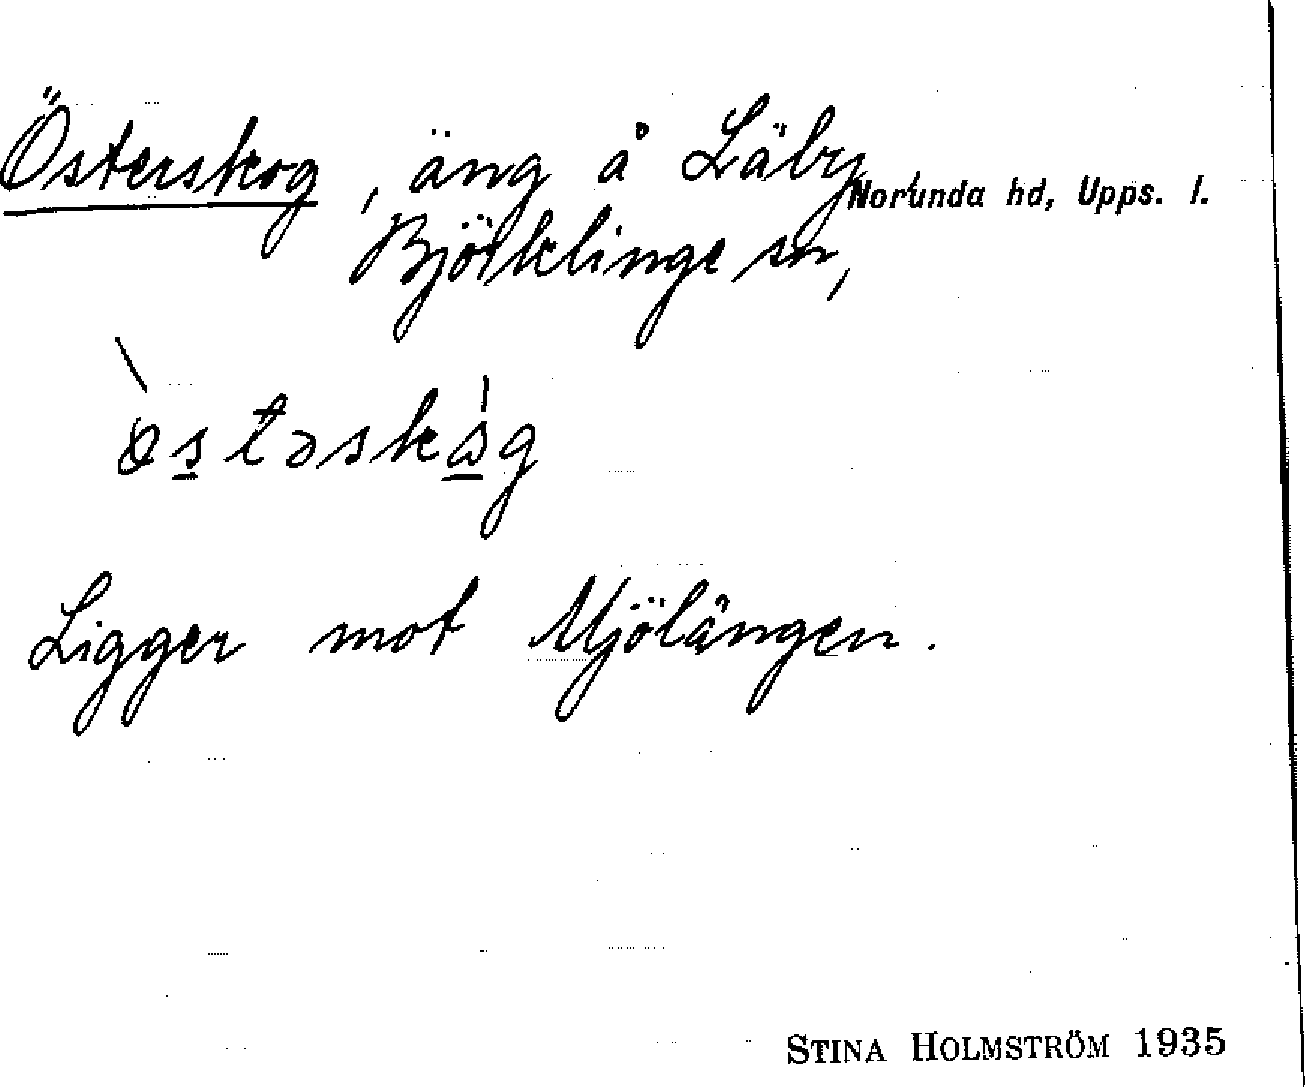 Österskog, äng å Läby,
Norunda hd, Upps. l.
Björklinge sn,
Ligger mot Mjölängen.
STINA HOLMSTRÖM 1935